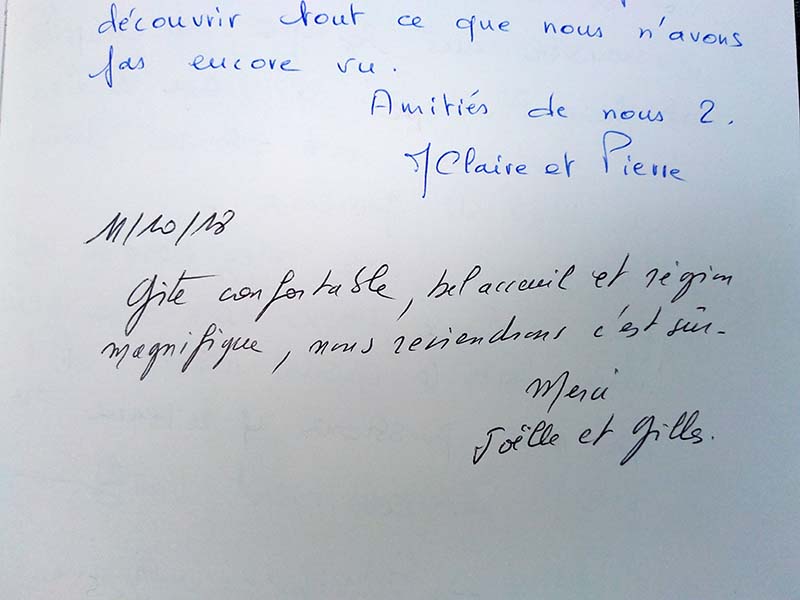 découvrir tout ce que nous n'avons
pas encore vu.
Amitiés de nous 2.
MClaire et Pierre
11/10/18
Gite confortable, bel accueil et région
magnifique, nous reviendrons c'est sûr.
Merci
Joëlle et Gilles.